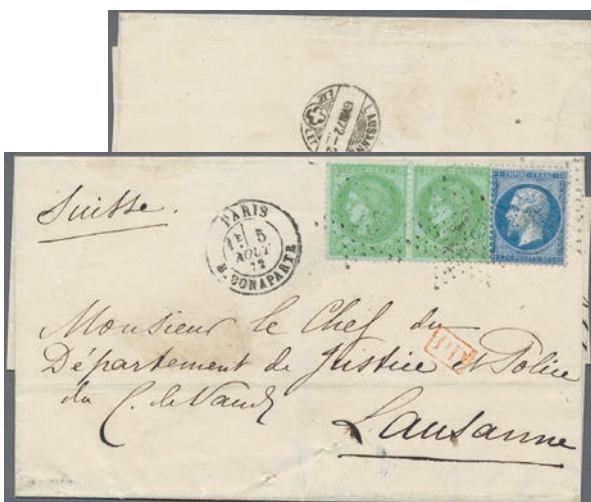 LAUSANN
6VIII72-
LET
Suisse.
PARIS
1E 5
AOUT
72
R. BONAPARTE
EMPIRE FRANC
Monsieur le Chef du
Département de Justice et Police
du C. de Vaud
Lausanne